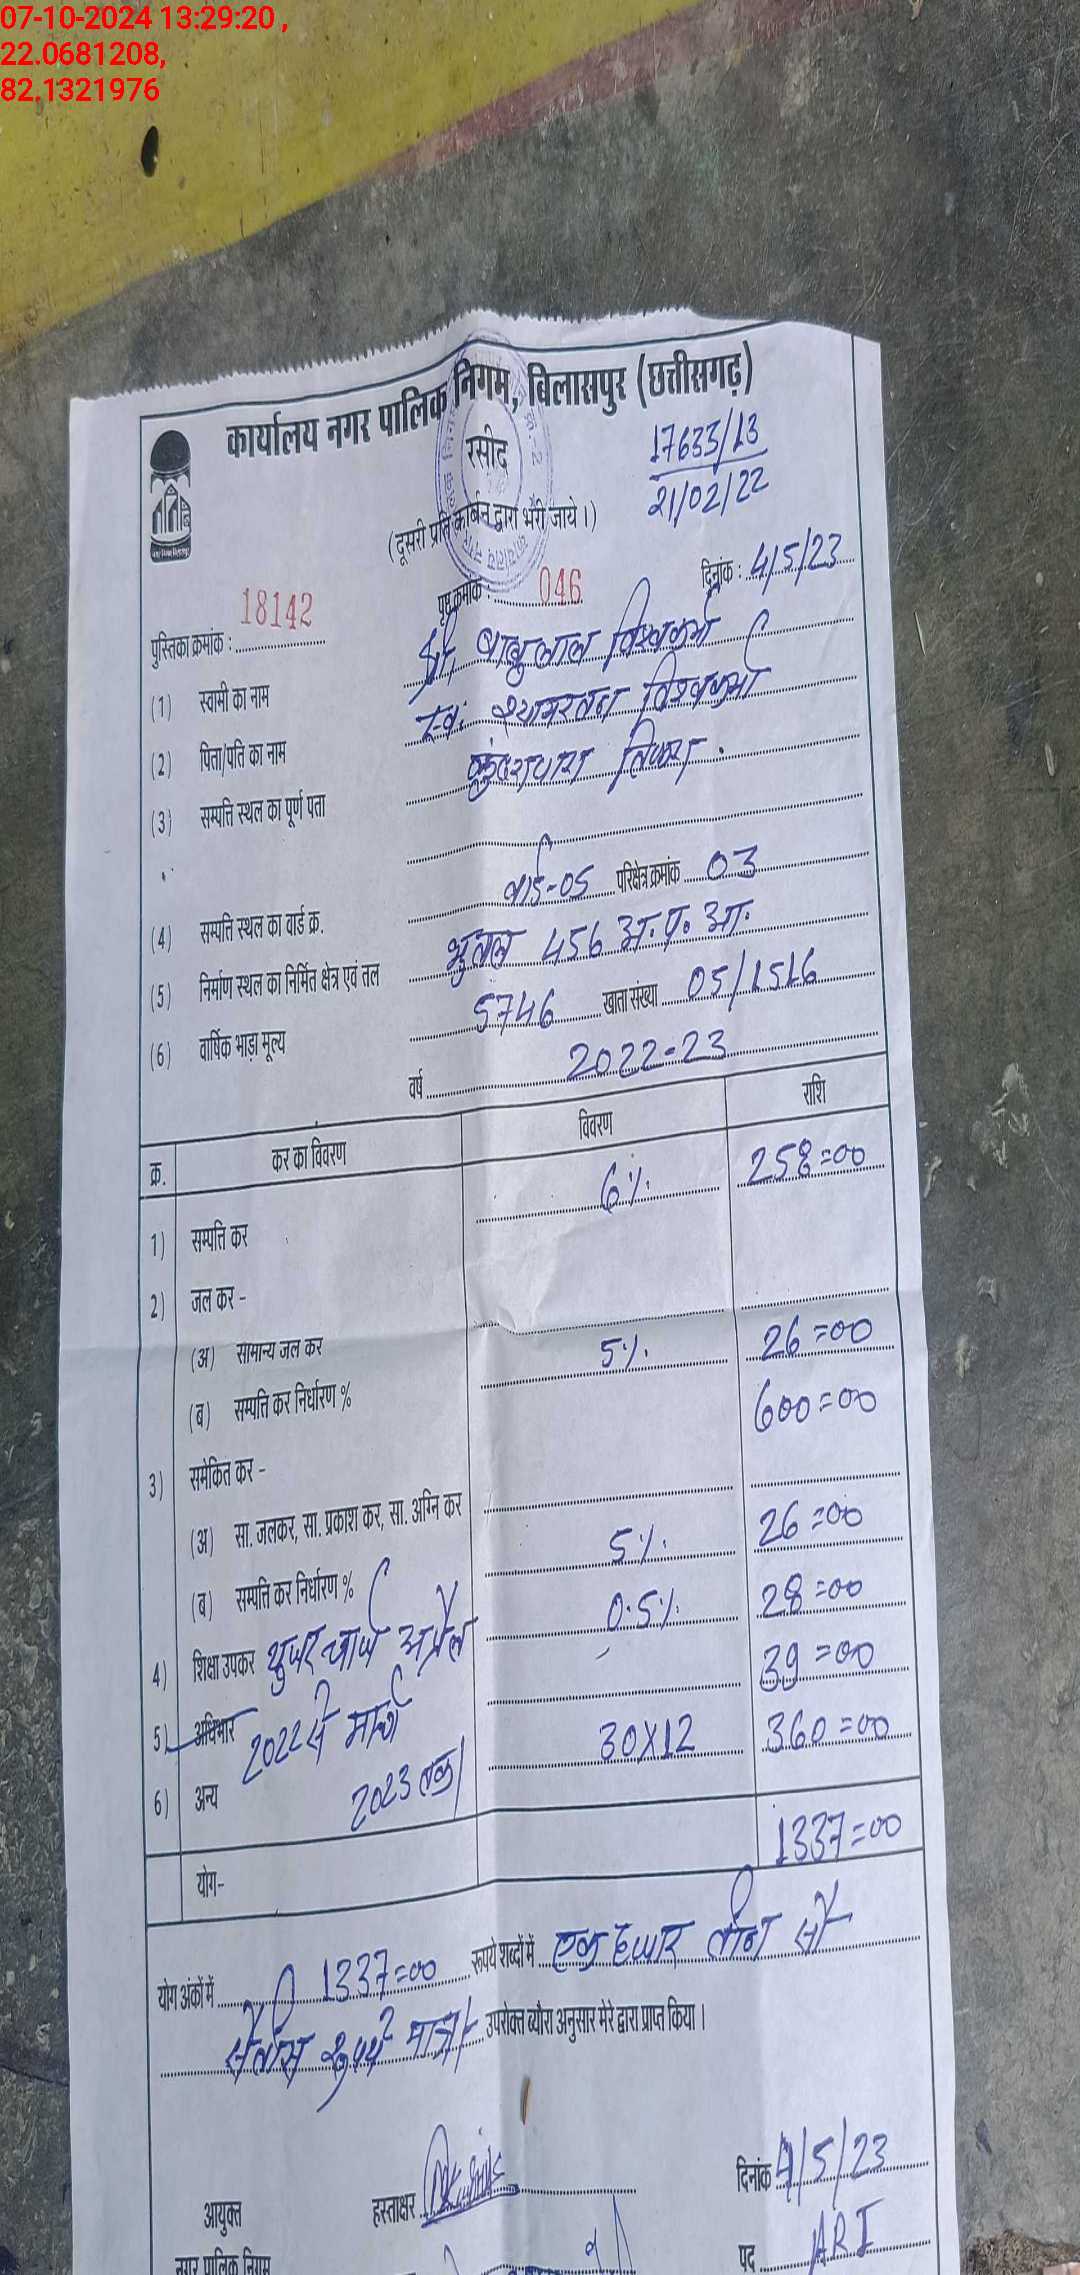 07-10-2024 13:29:20 ,
22.0681208,
82.1321976
कार्यालय नगर पालिक निगम, बिलासपुर (छत्तीसगढ़)
रसीद
17633/13
21/02/22
(दूसरी प्रति कार्बन द्वारा भरी जाये।)
पुस्तिका क्रमांक : 18142 पृष्ठ क्रमांक : 046 दिनांक : 4/5/23
(1) स्वामी का नाम श्री, बाबुलाल विश्वकर्मा
(2) पिता/पति का नाम स्व: श्यामरतन विश्वकर्मा
(3) सम्पत्ति स्थल का पूर्ण पता तिफरा.
(4) सम्पत्ति स्थल का वार्ड क्र. वार्ड-05 परिक्षेत्र क्रमांक 03
(5) निर्माण स्थल का निर्मित क्षेत्र एवं तल भुतल 456 आ. प. आ.
(6) वार्षिक भाड़ा मूल्य 5746 खाता संख्या 05/1516
वर्ष 2022-23
क्र. कर का विवरण विवरण राशि
1) सम्पत्ति कर 6% 258=00
2) जल कर -
(अ) सामान्य जल कर
(ब) सम्पत्ति कर निर्धारण % 5% 26=00
3) समेकित कर - 600=00
(अ) सा. जलकर, सा. प्रकाश कर, सा. अग्नि कर
(ब) सम्पत्ति कर निर्धारण % 5% 26=00
4) शिक्षा उपकर 0.5% 28=00
युजर चार्ज अप्रैल
5) अधिभार 39=00
2022 से मार्च
6) अन्य 30X12 360=00
2023 तक
योग- 1337=00
योग अंकों में 1337=00 रूपये शब्दों में एक हजार तीन सौ
सैंतीस रुपये मात्र उपरोक्त ब्यौरा अनुसार मेरे द्वारा प्राप्त किया।
आयुक्त हस्ताक्षर दिनांक 4/5/23
नगर पालिक निगम पद ARI